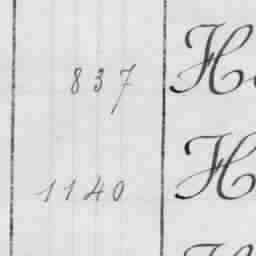 837 H
1140 H